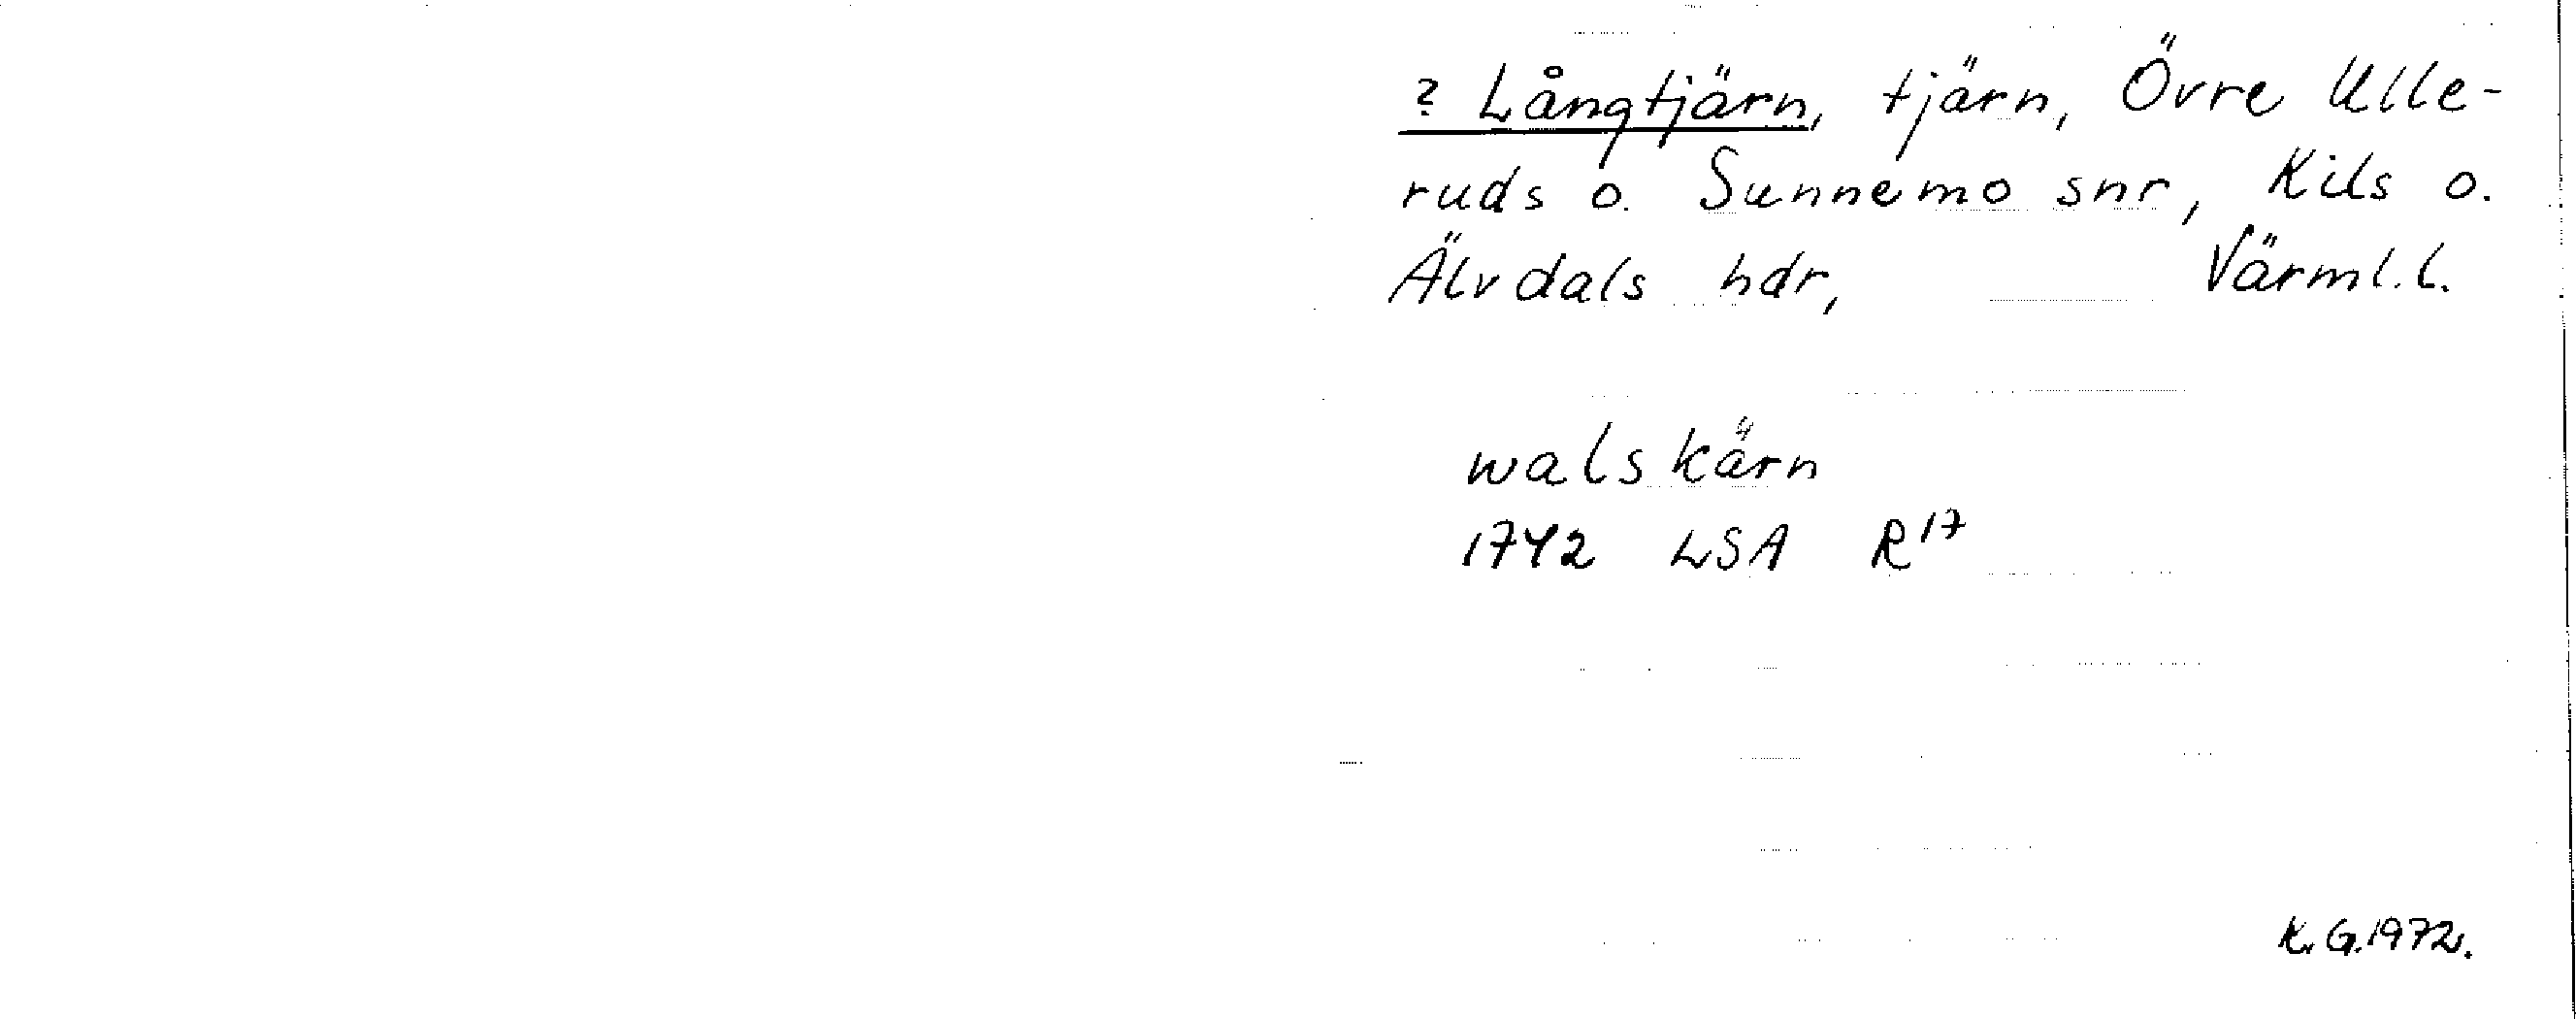 ? Långtjärn, tjärn, Övre Ulle-
ruds o. Sunnemo snr, Kils o.
Älvdals hdr, Värml.l.
walskärn
1742 LSA R17
K.G.1972.